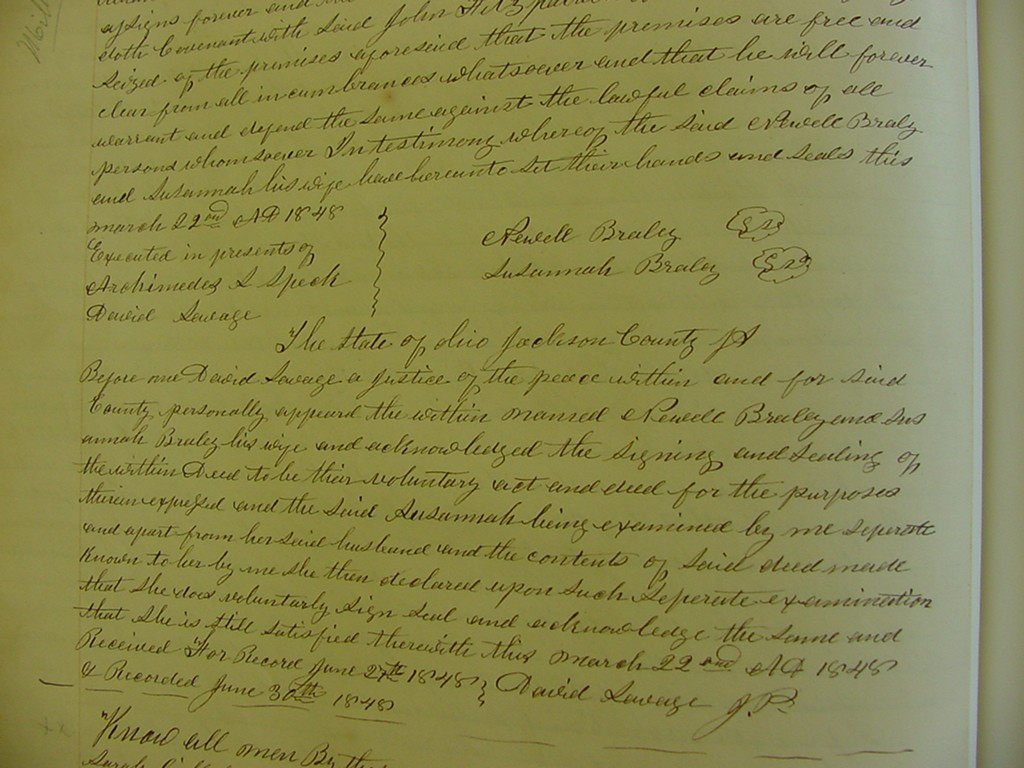 assigns forever and
doth Covenant with Said John Fitzpatrick
Seized of the premises aforesaid that the premises are free and
clear from all incumbrances whatsoever and that he will forever
warrant and defend the same against the lawful claims of all
persons whomsoever In testimony whereof the said Newell Braley
and Susannah his wife have hereunto set their hands and seals this
march 22nd AD 1848
Executed in presents of
Archimedes S Speck
David Savage
Newell Braley
Susannah Braley
The State of Ohio Jackson County SS
Before me David Savage a Justice of the peace within and for said
County personally appeard the within named Newell Braley and Sus
annah Braley his wife and acknowledged the signing and sealing of
the within Deed to be their voluntary act and deed for the purposes
therein expressed and the said Susannah being examined by me seperate
and apart from her said husband and the contents of said deed made
Known to her by me she then declared upon such seperate examination
that she does voluntarly sign seal and acknowledge the same and
that she is still satisfied therewith this march 22nd AD 1848
Received For Record June 27th 1848
David Savage J.P.
& Recorded June 30th 1848
Know all men By the
Sarah